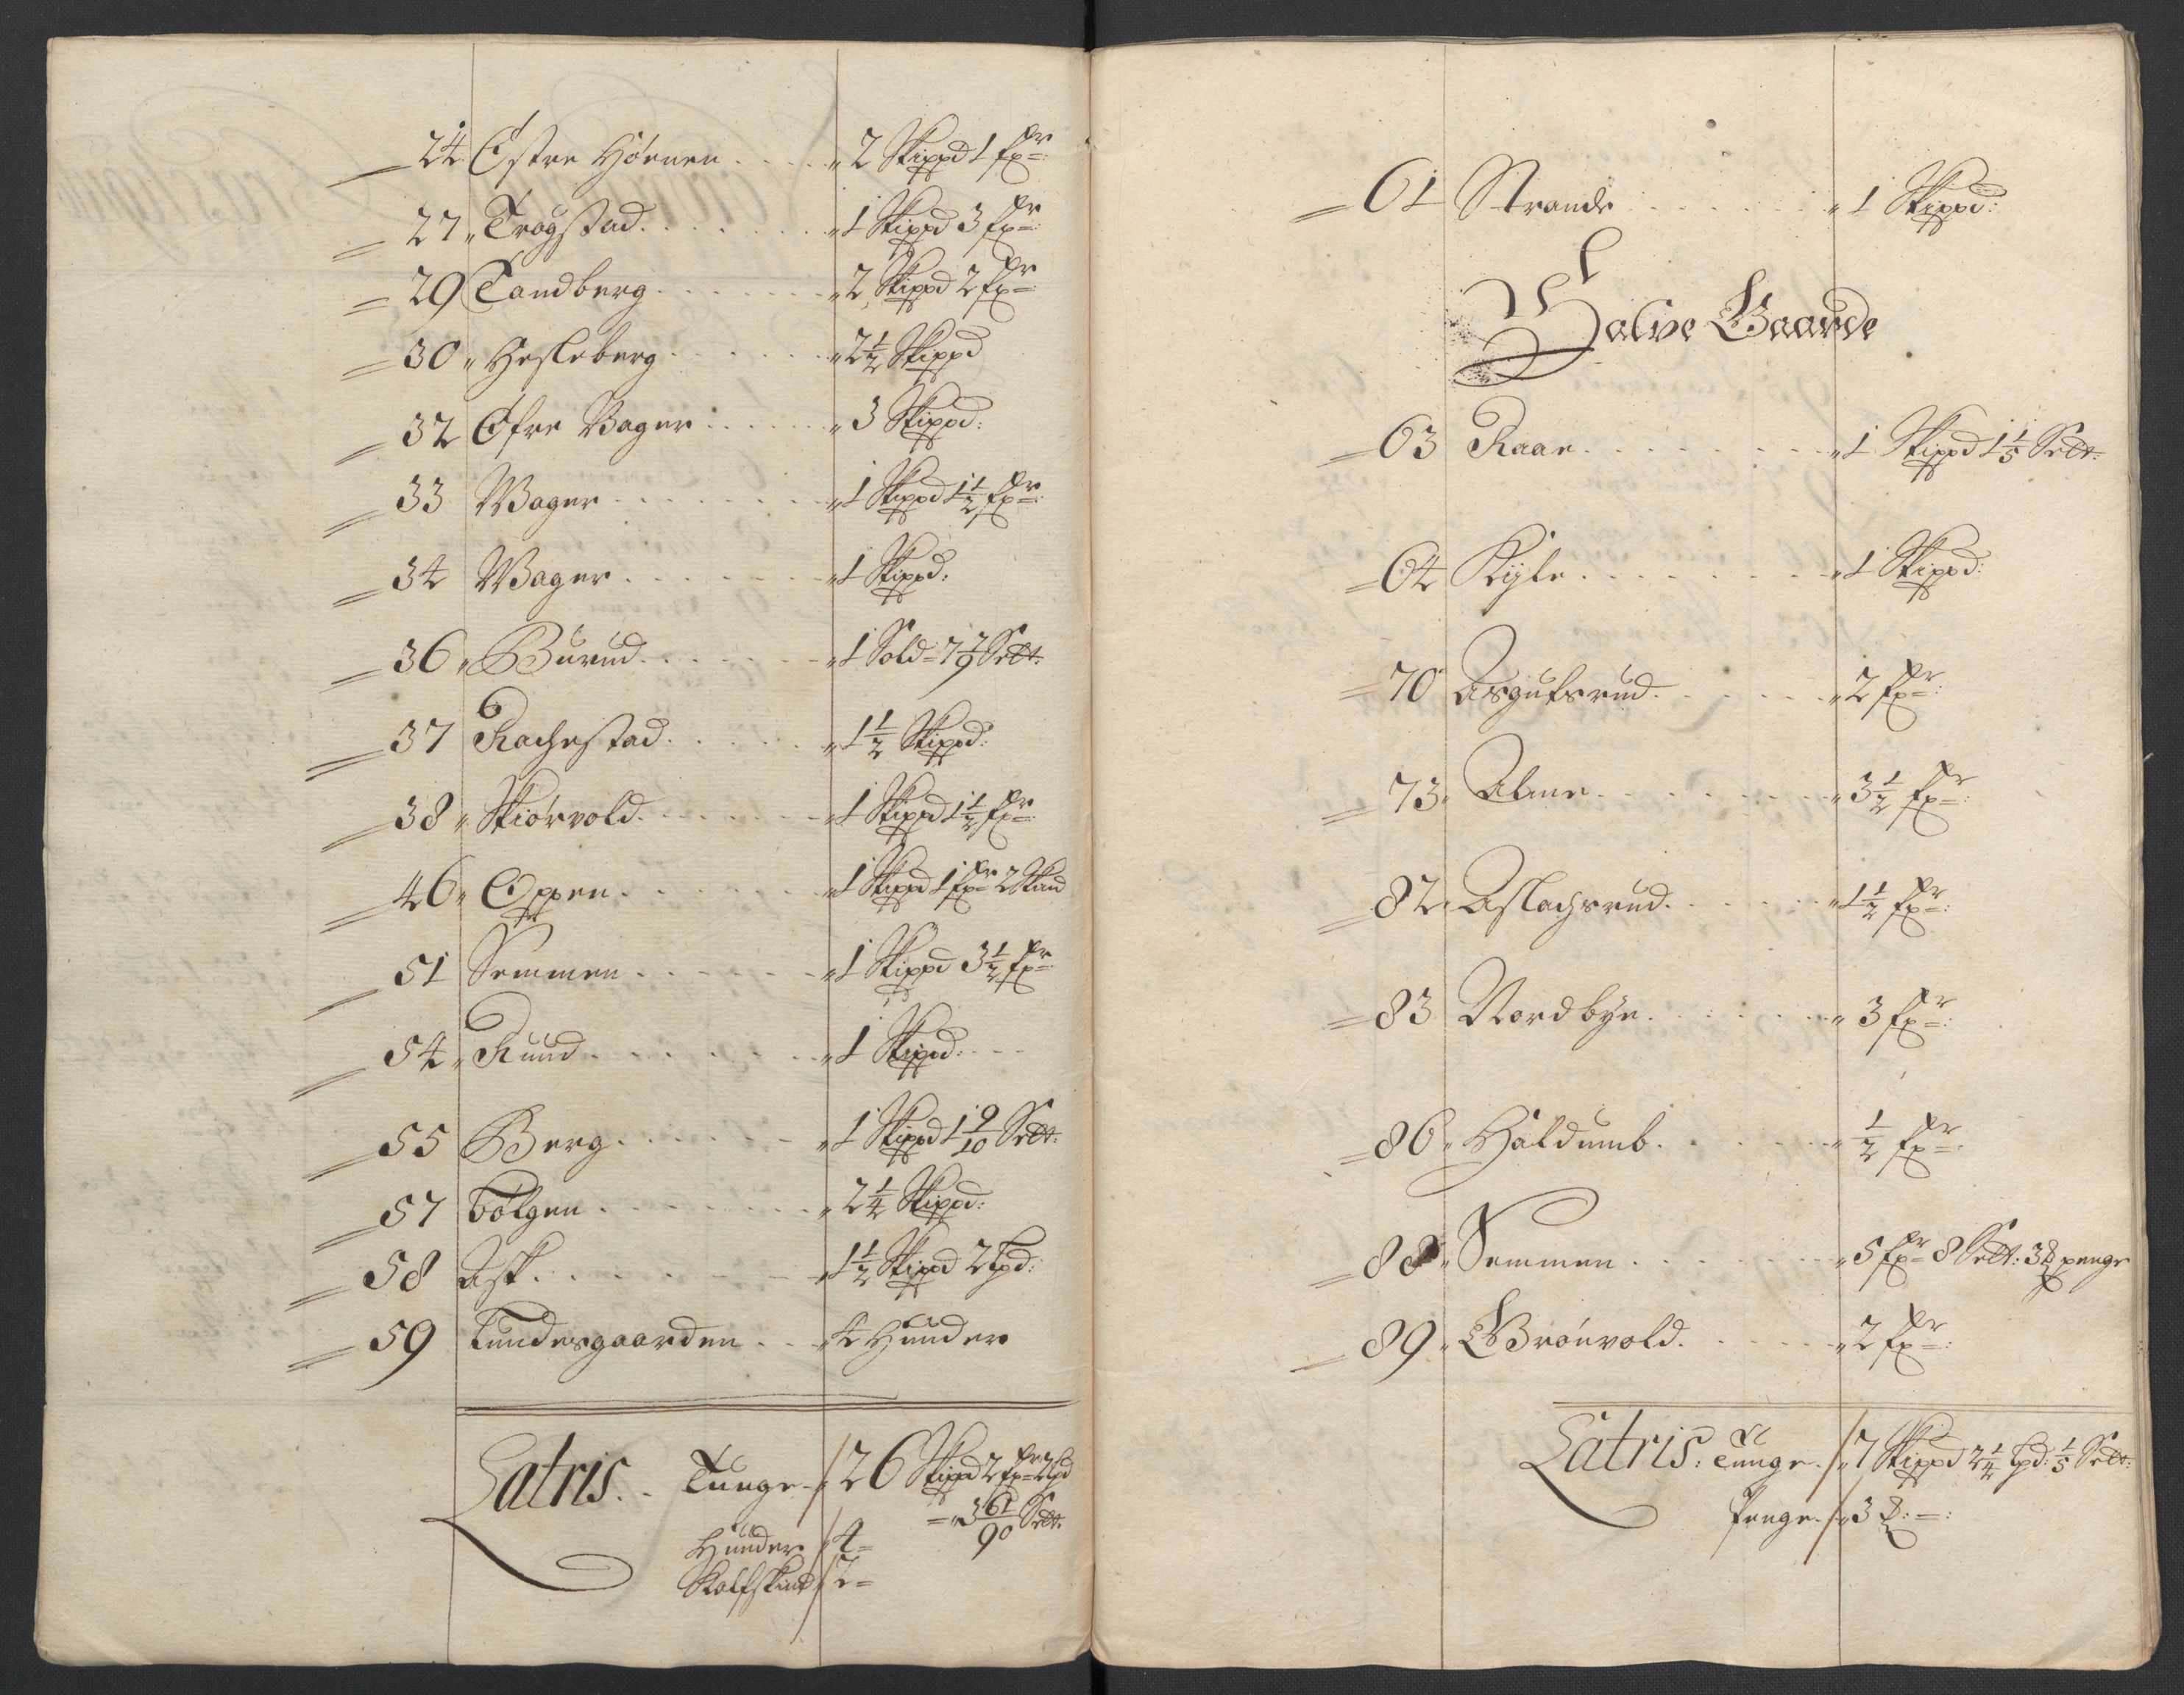 24 Østre Hørnen . . . . 2 Skippd 1 fr:
27 Trøgstad . . . . . . 1 Skippd 3 fr:
29 Tandberg . . . . . . 2 Skippd 2 fr:
30 Hesleberg . . . . . . 2½ Skippd
32 Øfre Wager . . . . . 3 Skippd:
33 Wager . . . . . . . 1 Skippd 1½ fr:
34 Wager . . . . . . . 1 Skippd:
36 Burud . . . . . . 1 Sold 7 7/9 Sett:
37 Rachestad . . . . . 1½ Skippd:
38 Skiørvold . . . . . . 1 Skippd 1½ fr:
46 Oppen . . . . . . . 1 Skippd 1 fr: 2 Skind
51 Semmen . . . . . . 1 Skippd 3½ fr:
54 Ruud . . . . . . . . 1 Skippd:
55 Berg . . . . . . . 1 Skippd 1 9/10 Sett:
57 Bølgen . . . . . . . 2¼ Skippd:
58 Ask . . . . . . . . 1½ Skippd 2 Lpd:
59 Lundesgaarden . . . 4 Huuder
Latris. Tunge / 26 Skippd 2 fr: 2 Lpd
3 61/90 Sett:
Huuder / 4
Kalfskind / 2
61 Strande . . . . . . 1 Skippd:
Halve Gaarde
63 Raae . . . . . . . . 1 Skippd 1 1/5 Sett:
64 Kijle . . . . . . . . 1 Skippd:
70 Asgutsrud . . . . . 2 fr:
73 Alme . . . . . . . . 3½ fr:
82 Aslachsrud . . . . . 1½ fr:
83 Nordbye . . . . . . 3 fr:
86 Haldumb . . . . . . ½ fr:
88 Semmen . . . . . . 5 fr: 8 Sett: 3 ß penge
89 Grønvold . . . . . . 2 fr:
Latris: Tunge / 7 Skippd 2¼ Lpd: 1/5 Sett:
Penge / 3 ß: